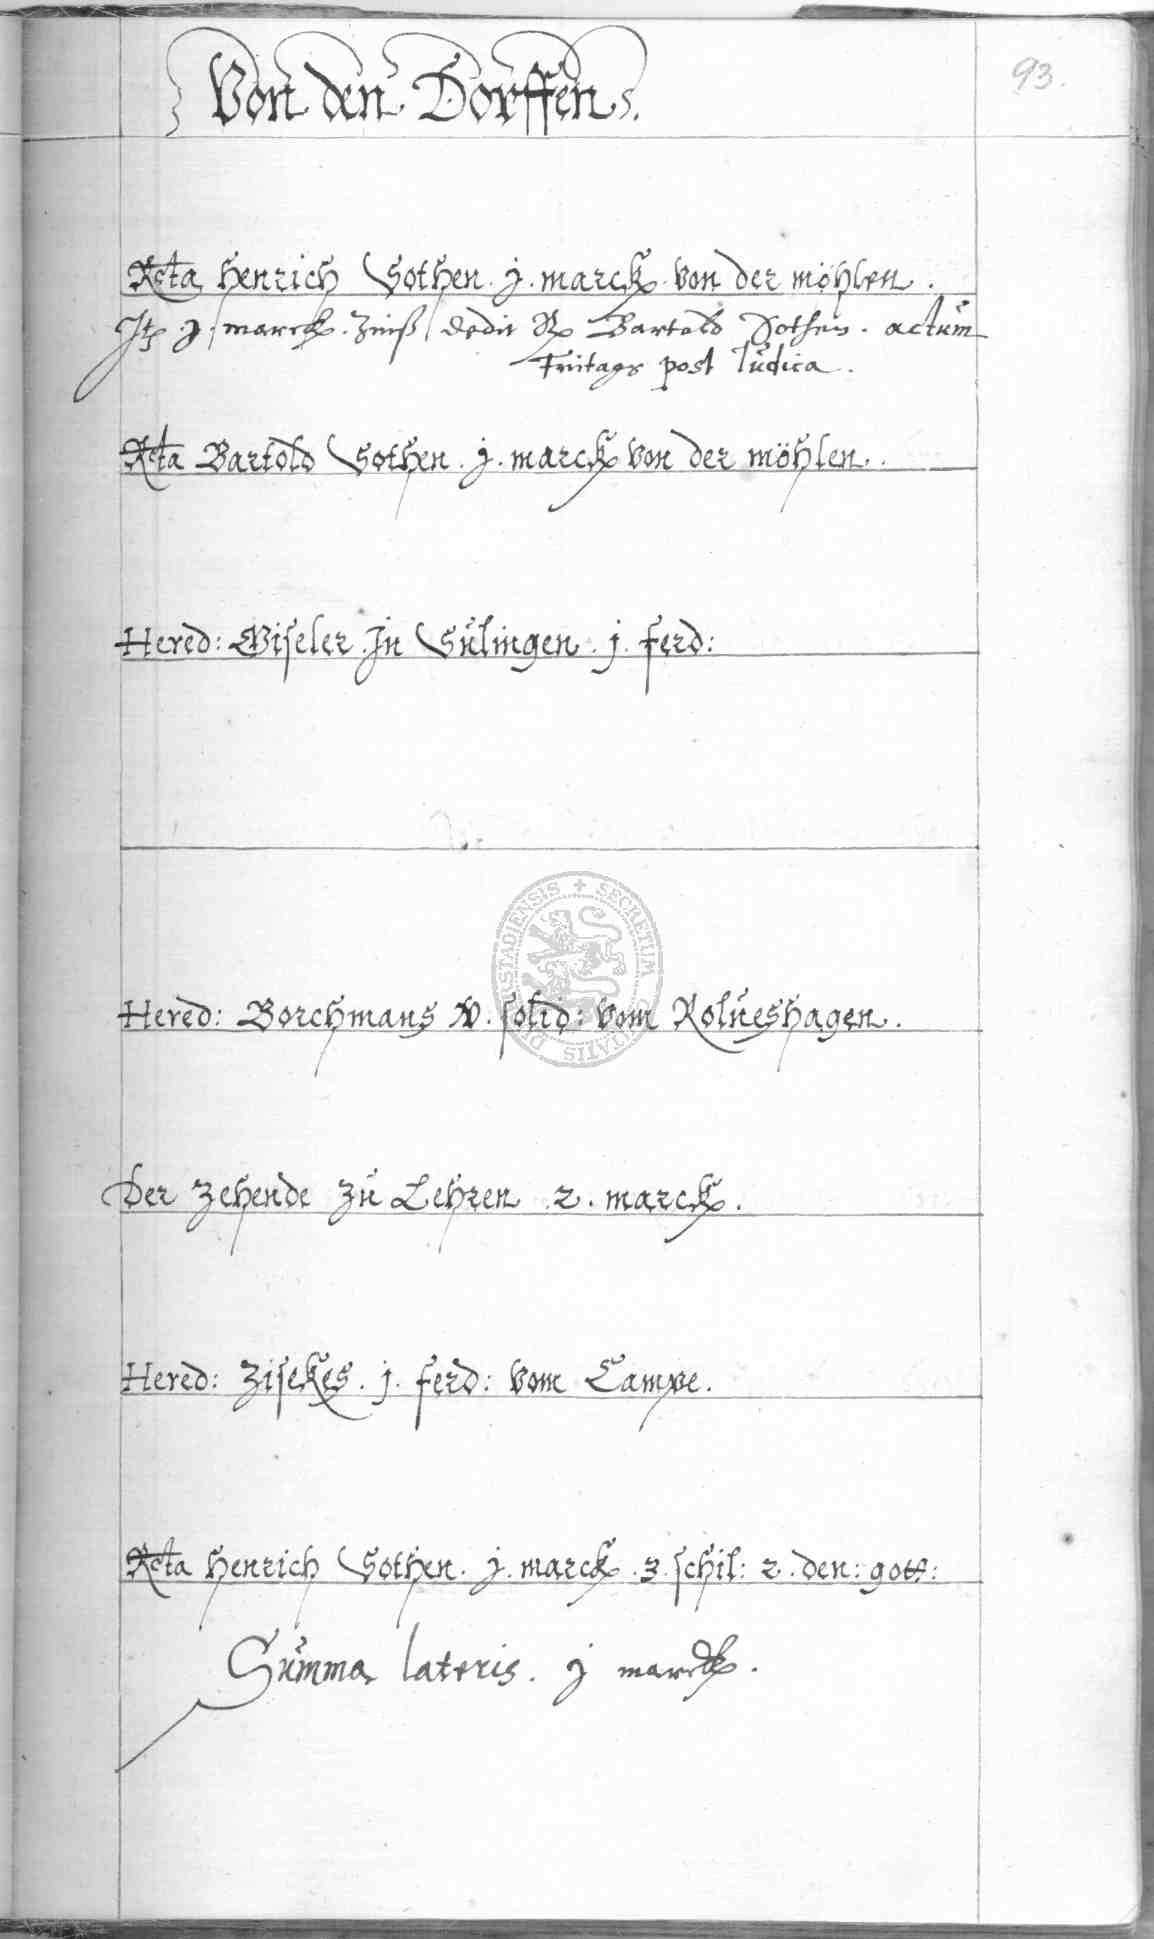 Von den Dorffen.
93.
Rcta Henrich Sothen. j. marck von der möhlen.
It. j. marck. Zinß dedit Bartold Sothen. actum
Fritags post Iudica.
Rcta Bartold Sothen. j. marck von der möhlen.
Hered: Wiseler. In Sulingen. j. ferd:
Hered: Borchmans v. solid: vom Rolueshagen.
Der Zehende zu Lehren 2. marck.
Hered: Zisekes. j. ferd: vom Campe.
Rcta Henrich Sothen. j. marck. 3. schil: 2. den: gott:
Summa lateris. j marck.
SECRETUM CIVITATIS DUSTADIENSIS